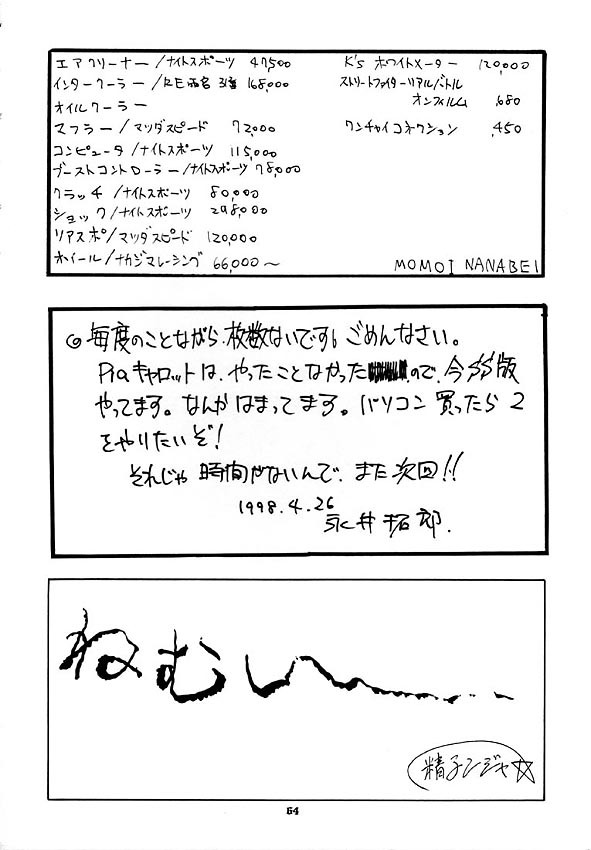 エアクリーナー/ナイトスポーツ 47,500
インタークーラー/RE雨宮 3層 168,000
オイルクーラー
マフラー/マツダスピード 72,000
コンピュータ/ナイトスポーツ 115,000
ブーストコントローラー/ナイトスポーツ 78,000
クラッチ/ナイトスポーツ 80,000
ショック/ナイトスポーツ 298,000
リアスポ/マツダスピード 120,000
ホイール/ナカジマレーシング 66,000〜
K's ホワイトメーター 120,000
ストリートファイターリアルバトル
オンフィルム 680
ワンチャイコネクション 450
MOMOI NANABEI
◎毎度のことながら、枚数ないです。ごめんなさい。
Piaキャロットは、やったことなかったので、今SS版
やってます。なんかはまってます。パソコン買ったら2
をやりたいぞ!
それじゃ時間がないんで、また次回!!
1998.4.26
永井拓郎.
ねむい〜...
精子ンジャ☆
64